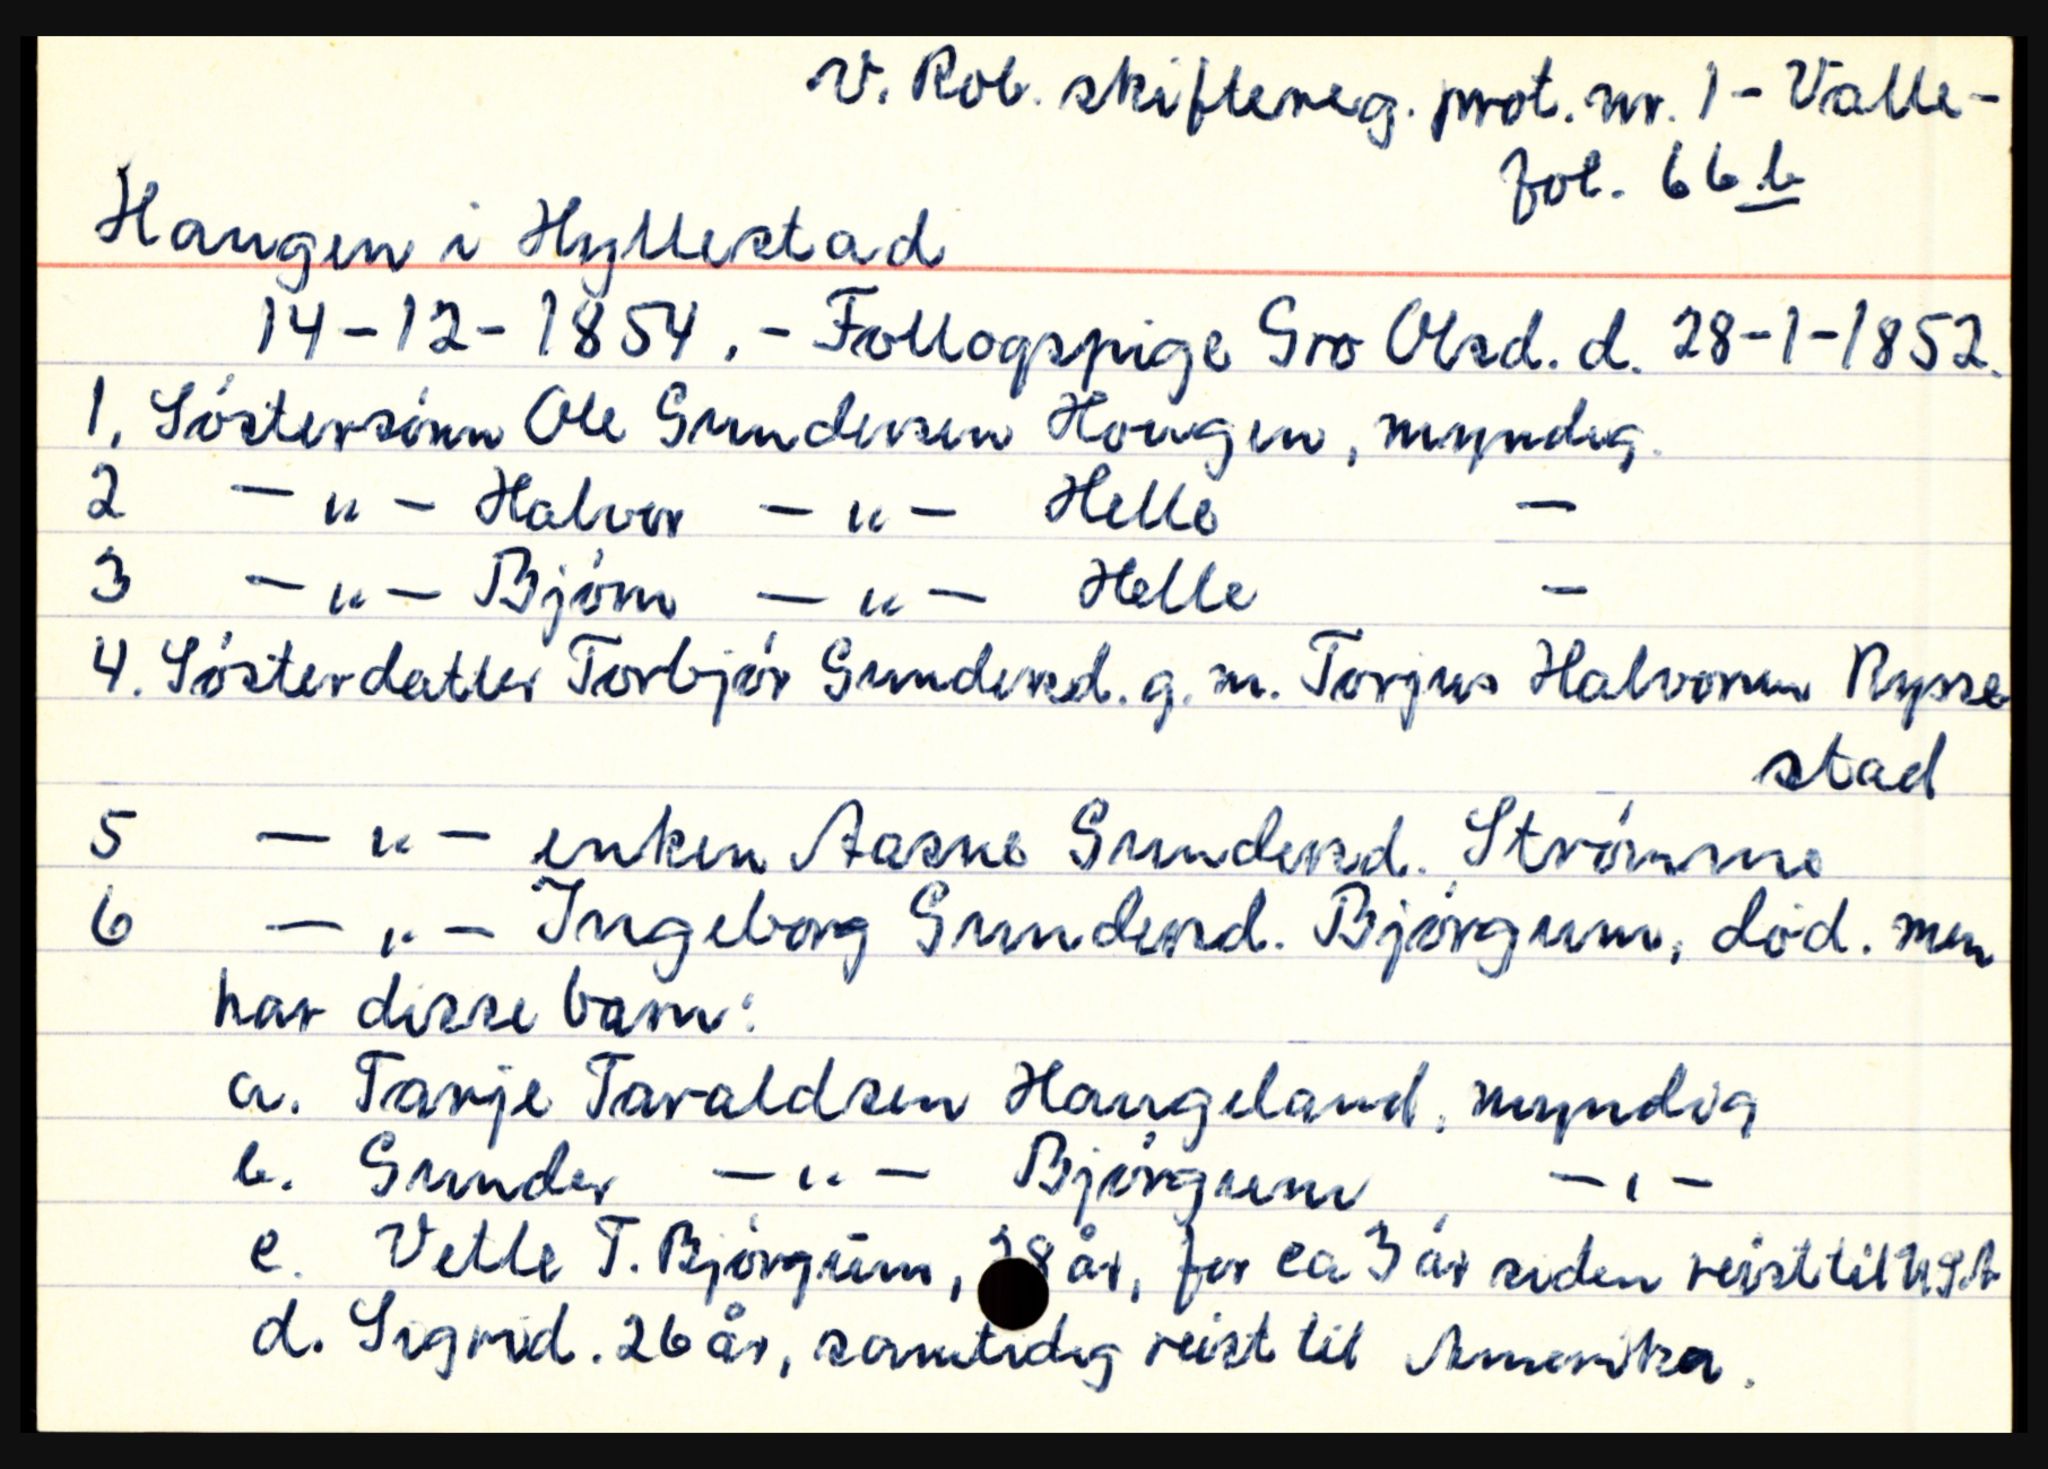 V. Rob. skiftereg. prot. nr. 1 - Valle -
fol. 66 b
Haugen i Hyllestad
14-12-1854. - Follogspige Gro Olsd. d. 28-1-1852.
1. Söstersönn Ole Gundersen Hougen, myndig.
2 - " - Halvor - " - Helle -
3 - " - Björn - " - Helle -
4. Sösterdatter Torbjör Gundersd. g. m. Torjus Halvorsen Rysse
stad
5 - " - enken Aasne Gundersd. Strömme
6 - " - Ingeborg Gundersd. Björgum, död. men
har disse barn:
a. Tarje Taraldsen Haugeland, myndig
b. Gunder - " - Björgum - " -
c. Vetle T. Björgum, 28 år, for ca 3 år siden reist til USA
d. Sigrid. 26 år, samtidig reist til Amerika.